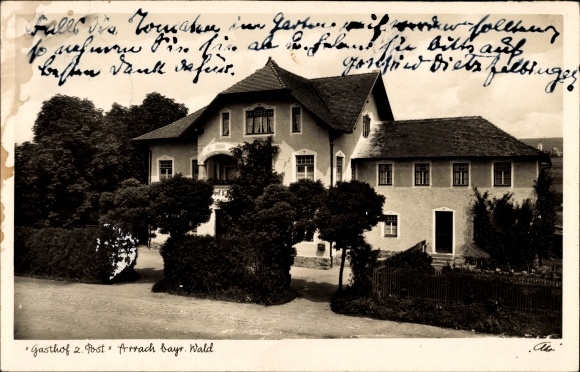 Falls die Tomaten im Garten reif werden sollten,
so nehmen Sie sie ab u. heben sie bitte auf
besten Dank dafür. Gottfried Dietzfelbinger
"Gasthof z. Post" Arrach bayr. Wald